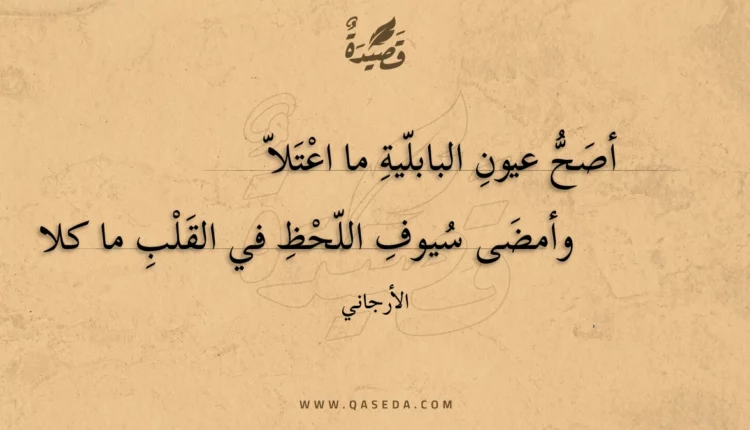 قَصِيْدَةٌ
أصَحُّ عيونِ البابلّيةِ ما اعْتَلاّ
وأمضَى سُيوفِ اللّحْظِ في القَلْبِ ما كلا
الأرجاني
WWW.QASEDA.COM